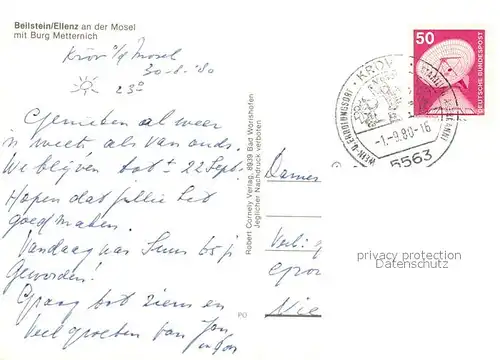 Beilstein/Ellenz an der Mosel
mit Burg Metternich
Kröv a/d Mosel
30-8-'80
23°
Genieten al weer
'n week als van ouds.
We blijven tot ± 22 Sept.
Hopen dat jullie het
goed maken.
Vandaag was 65 j
geworden!
Graag tot ziens en
Veel groeten van Jan
en
Robert Cornely Verlag, 8939 Bad Wörishofen
Jeglicher Nachdruck verboten
PO
50
DEUTSCHE BUNDESPOST
KRÖV
WEIN-U.ERHOLUNGSORT
-1.-9.80-16
5563
privacy protection
Datenschutz